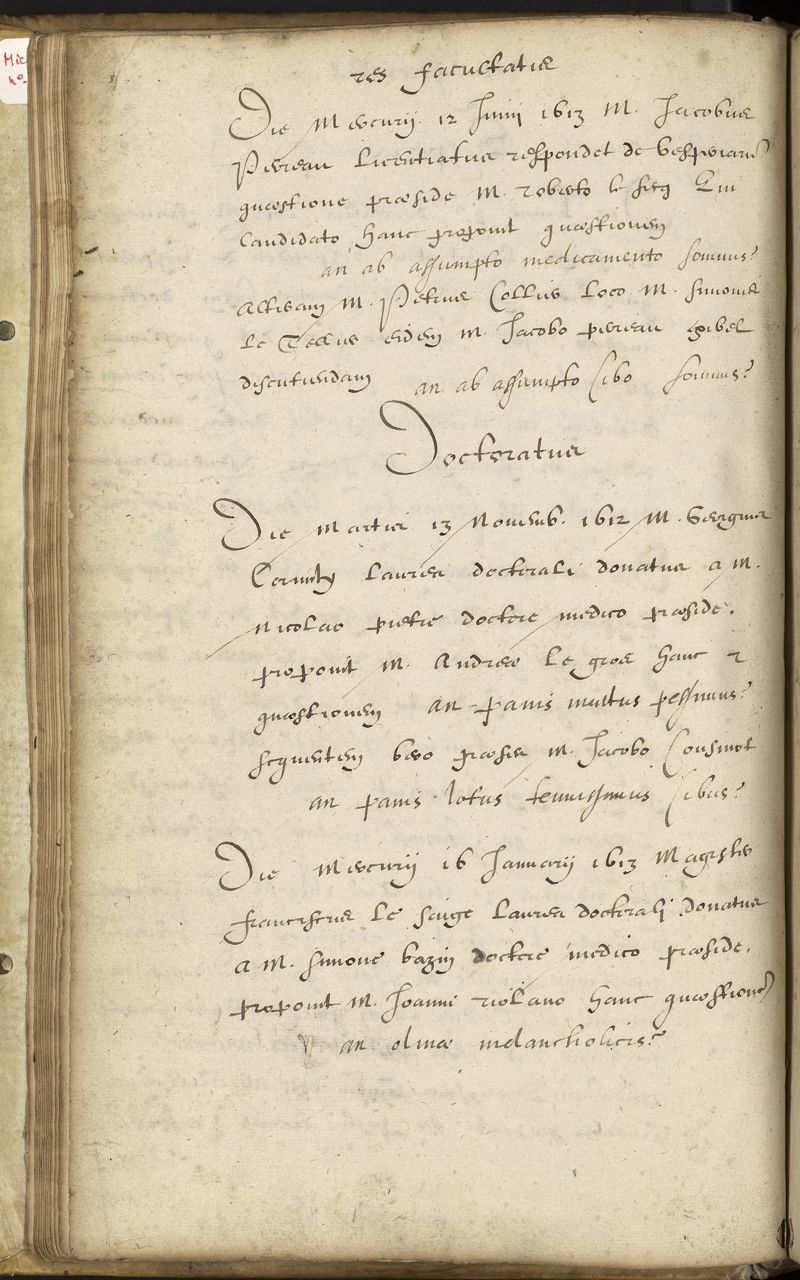 res facultatis
Die Mercurii 12 Junii 1613 M. Jacobus
Pierreau Licentiatus respondet de vesperiarum
quæstione præside M. roberto le secq Qui
Candidato hanc proponit quæstionem
an ab assumpto medicamento somnus?
Alteram M. Petrus Collier Loco M. Simonis
Le Tellier eidem M. Jacobo pierreau
discutiendam an ab assumpto Cibo somnus?
Doctoratus
Die Martis 13 Novemb. 1612 M.
Cornuty Laurea doctorali donatur a M.
Nicolao pietre doctore medico præside.
proponit M. Andreæ Le gros hanc
quæstionem an panis multus pessimus?
sequentem vero præses M. Jacobo Cousinot
an panis lotus tenuissimus Cibus?
Die Mercurii 16 Januarii 1613 Magister
franciscus Le Saige Laurea doctorali donatur
a M. Simone bazin doctore medico præside.
proponit M. Joanni riolano hanc quæstionem
an olivæ melancholicis?